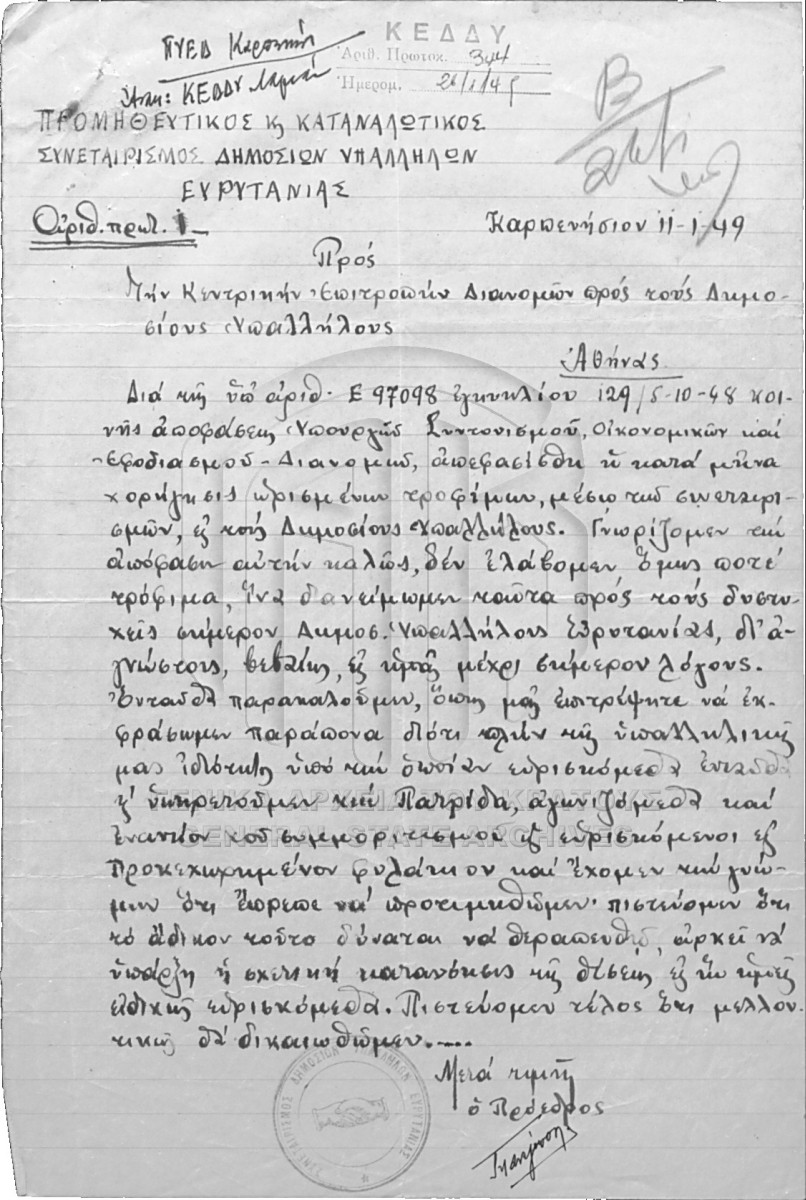 ΚΕΔΔΥ
Ἀριθ. Πρωτοκ. 344
Ἡμερομ. 26/1/49
ΠΥΕΔ
ΚΕΔΔΥ
ΠΡΟΜΗΘΕΥΤΙΚΟΣ Κ ΚΑΤΑΝΑΛΩΤΙΚΟΣ
ΣΥΝΕΤΑΙΡΙΣΜΟΣ ΔΗΜΟΣΙΩΝ ΥΠΑΛΛΗΛΩΝ
ΕΥΡΥΤΑΝΙΑΣ
Ἀριθ. πρωτ. 1
Καρπενήσιον 11-1-49
Πρός
Τήν Κεντρικήν Ἐπιτροπήν Διανομῶν πρός τούς Δημο-
σίους Ὑπαλλήλους
Ἀθήνας
Διά τῆς ὑπ' ἀριθ. Ε 97098 ἐγκυκλίου 129/5-10-48 κοι-
νῆς ἀποφάσεως Ὑπουργῶν Συντονισμοῦ, Οἰκονομικῶν καί
Ἐφοδιασμοῦ - Διανομῶν, ἀπεφασίσθη ἡ κατά μῆνα
χορήγησις ὡρισμένων τροφίμων, μέσω τῶν συνεταιρι-
σμῶν, εἰς τούς Δημοσίους Ὑπαλλήλους. Γνωρίζομεν τήν
ἀπόφασιν αὐτήν καλῶς, δέν ἐλάβομεν ὅμως ποτέ
τρόφιμα, ἵνα διανείμωμεν ταῦτα πρός τούς δυστυ-
χεῖς σήμερον Δημοσ. Ὑπαλλήλους Εὐρυτανίας, δι' ἀ-
γνώστους, βεβαίως, εἰς ἡμᾶς μέχρι σήμερον λόγους.
Ἐνταῦθα παρακαλοῦμεν, ὅπως μᾶς ἐπιτρέψητε νά ἐκ-
φράσωμεν παράπονα διότι πλήν τῆς ὑπαλληλικῆς
μας ἰδιότητος ὑπό τήν ὁποίαν εὑρισκόμεθα ἐνταῦθα
ὑπηρετοῦμεν τήν Πατρίδα, ἀγωνιζόμεθα καί
ἐναντίον τοῦ συμμοριτισμοῦ εὑρισκόμενοι εἰς
Προκεχωρημένον φυλάκιον καί ἔχομεν τήν γνώ-
μην ὅτι ἔπρεπε νά προτιμηθῶμεν· πιστεύομεν ὅτι
τό ἄδικον τοῦτο δύναται νά θεραπευθῇ, ἀρκεῖ νά
ὑπάρξῃ ἡ σχετική κατανόησις τῆς θέσεως εἰς ἥν ἡμεῖς
εἰδικῶς εὑρισκόμεθα. Πιστεύομεν τέλος ὅτι μελλον-
τικῶς θά δικαιωθῶμεν.....
Μετά τιμῆς
ὁ Πρόεδρος
ΣΥΝΕΤΑΙΡΙΣΜΟΣ ΔΗΜΟΣΙΩΝ ΥΠΑΛΛΗΛΩΝ ΕΥΡΥΤΑΝΙΑΣ
ΓΕΝΙΚΑ ΑΡΧΕΙΑ ΤΟΥ ΚΡΑΤΟΥΣ
GENERAL STATE ARCHIVES